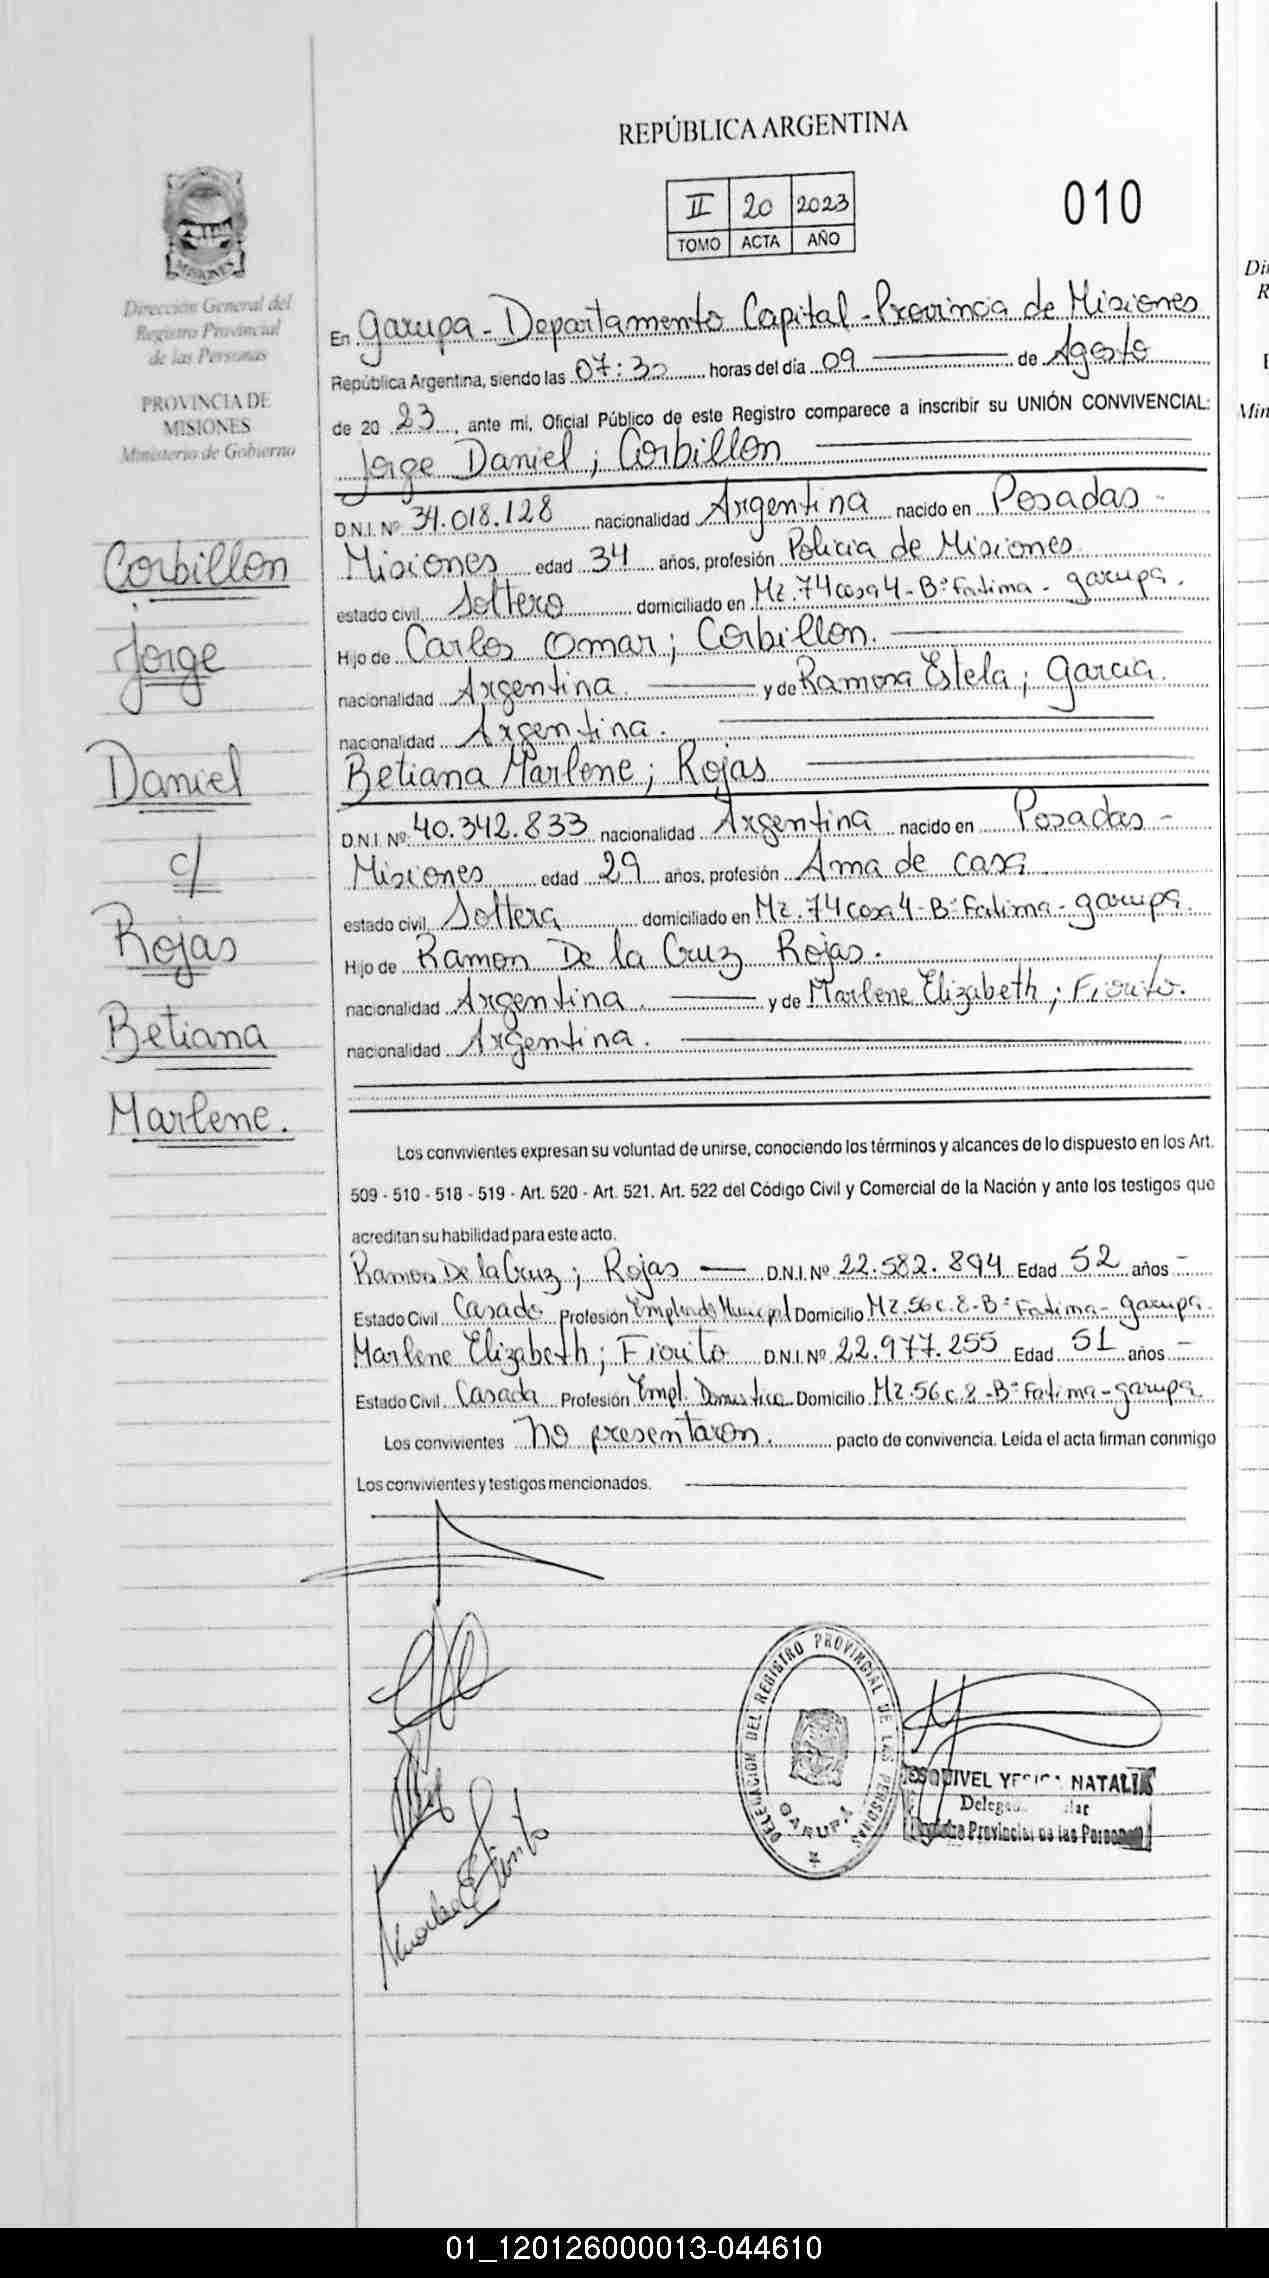 REPÚBLICA ARGENTINA
II 20 2023
TOMO ACTA AÑO
010
MISIONES
Dirección General del
Registro Provincial
de las Personas
PROVINCIA DE
MISIONES
Ministerio de Gobierno
Corbillon
Jorge
Daniel
c/
Rojas
Betiana
Marlene.
En Garupa - Departamento Capital - Provincia de Misiones
República Argentina, siendo las 07:30 horas del día 09 de Agosto
de 20 23, ante mi, Oficial Público de este Registro comparece a inscribir su UNIÓN CONVIVENCIAL:
Jorge Daniel; Corbillon
D.N.I. Nº 34.018.128 nacionalidad Argentina nacido en Posadas -
Misiones edad 34 años, profesión Policia de Misiones
estado civil Soltero domiciliado en Mz. 74 casa 4 - Bº Fatima - garupa.
Hijo de Carlos Omar; Corbillon.
nacionalidad Argentina. y de Ramona Estela; Garcia.
nacionalidad Argentina.
Betiana Marlene; Rojas
D.N.I. Nº 40.342.833 nacionalidad Argentina nacido en Posadas -
Misiones edad 29 años, profesión Ama de casa
estado civil Soltera domiciliado en Mz. 74 casa 4 - Bº Fatima - garupa.
Hijo de Ramon De la Cruz Rojas.
nacionalidad Argentina. y de Marlene Elizabeth; Fiorito.
nacionalidad Argentina.
Los convivientes expresan su voluntad de unirse, conociendo los términos y alcances de lo dispuesto en los Art.
509 - 510 - 518 - 519 - Art. 520 - Art. 521. Art. 522 del Código Civil y Comercial de la Nación y ante los testigos que
acreditan su habilidad para este acto.
Ramon De la Cruz; Rojas — D.N.I. Nº 22.582.894 Edad 52 años -
Estado Civil Casado Profesión Empleado Municipal Domicilio Mz. 56 c. 8 - Bº Fatima - garupa.
Marlene Elizabeth; Fiorito D.N.I. Nº 22.977.255 Edad 51 años -
Estado Civil Casada Profesión Empl. Domestica Domicilio Mz. 56 c. 8 - Bº Fatima - garupa.
Los convivientes No presentaron. pacto de convivencia. Leída el acta firman conmigo
Los convivientes y testigos mencionados.
DELEGACION DEL REGISTRO PROVINCIAL DE LAS PERSONAS
GARUPA
ESQUIVEL NATALIA
Provincial de las Personas
01_120126000013-044610